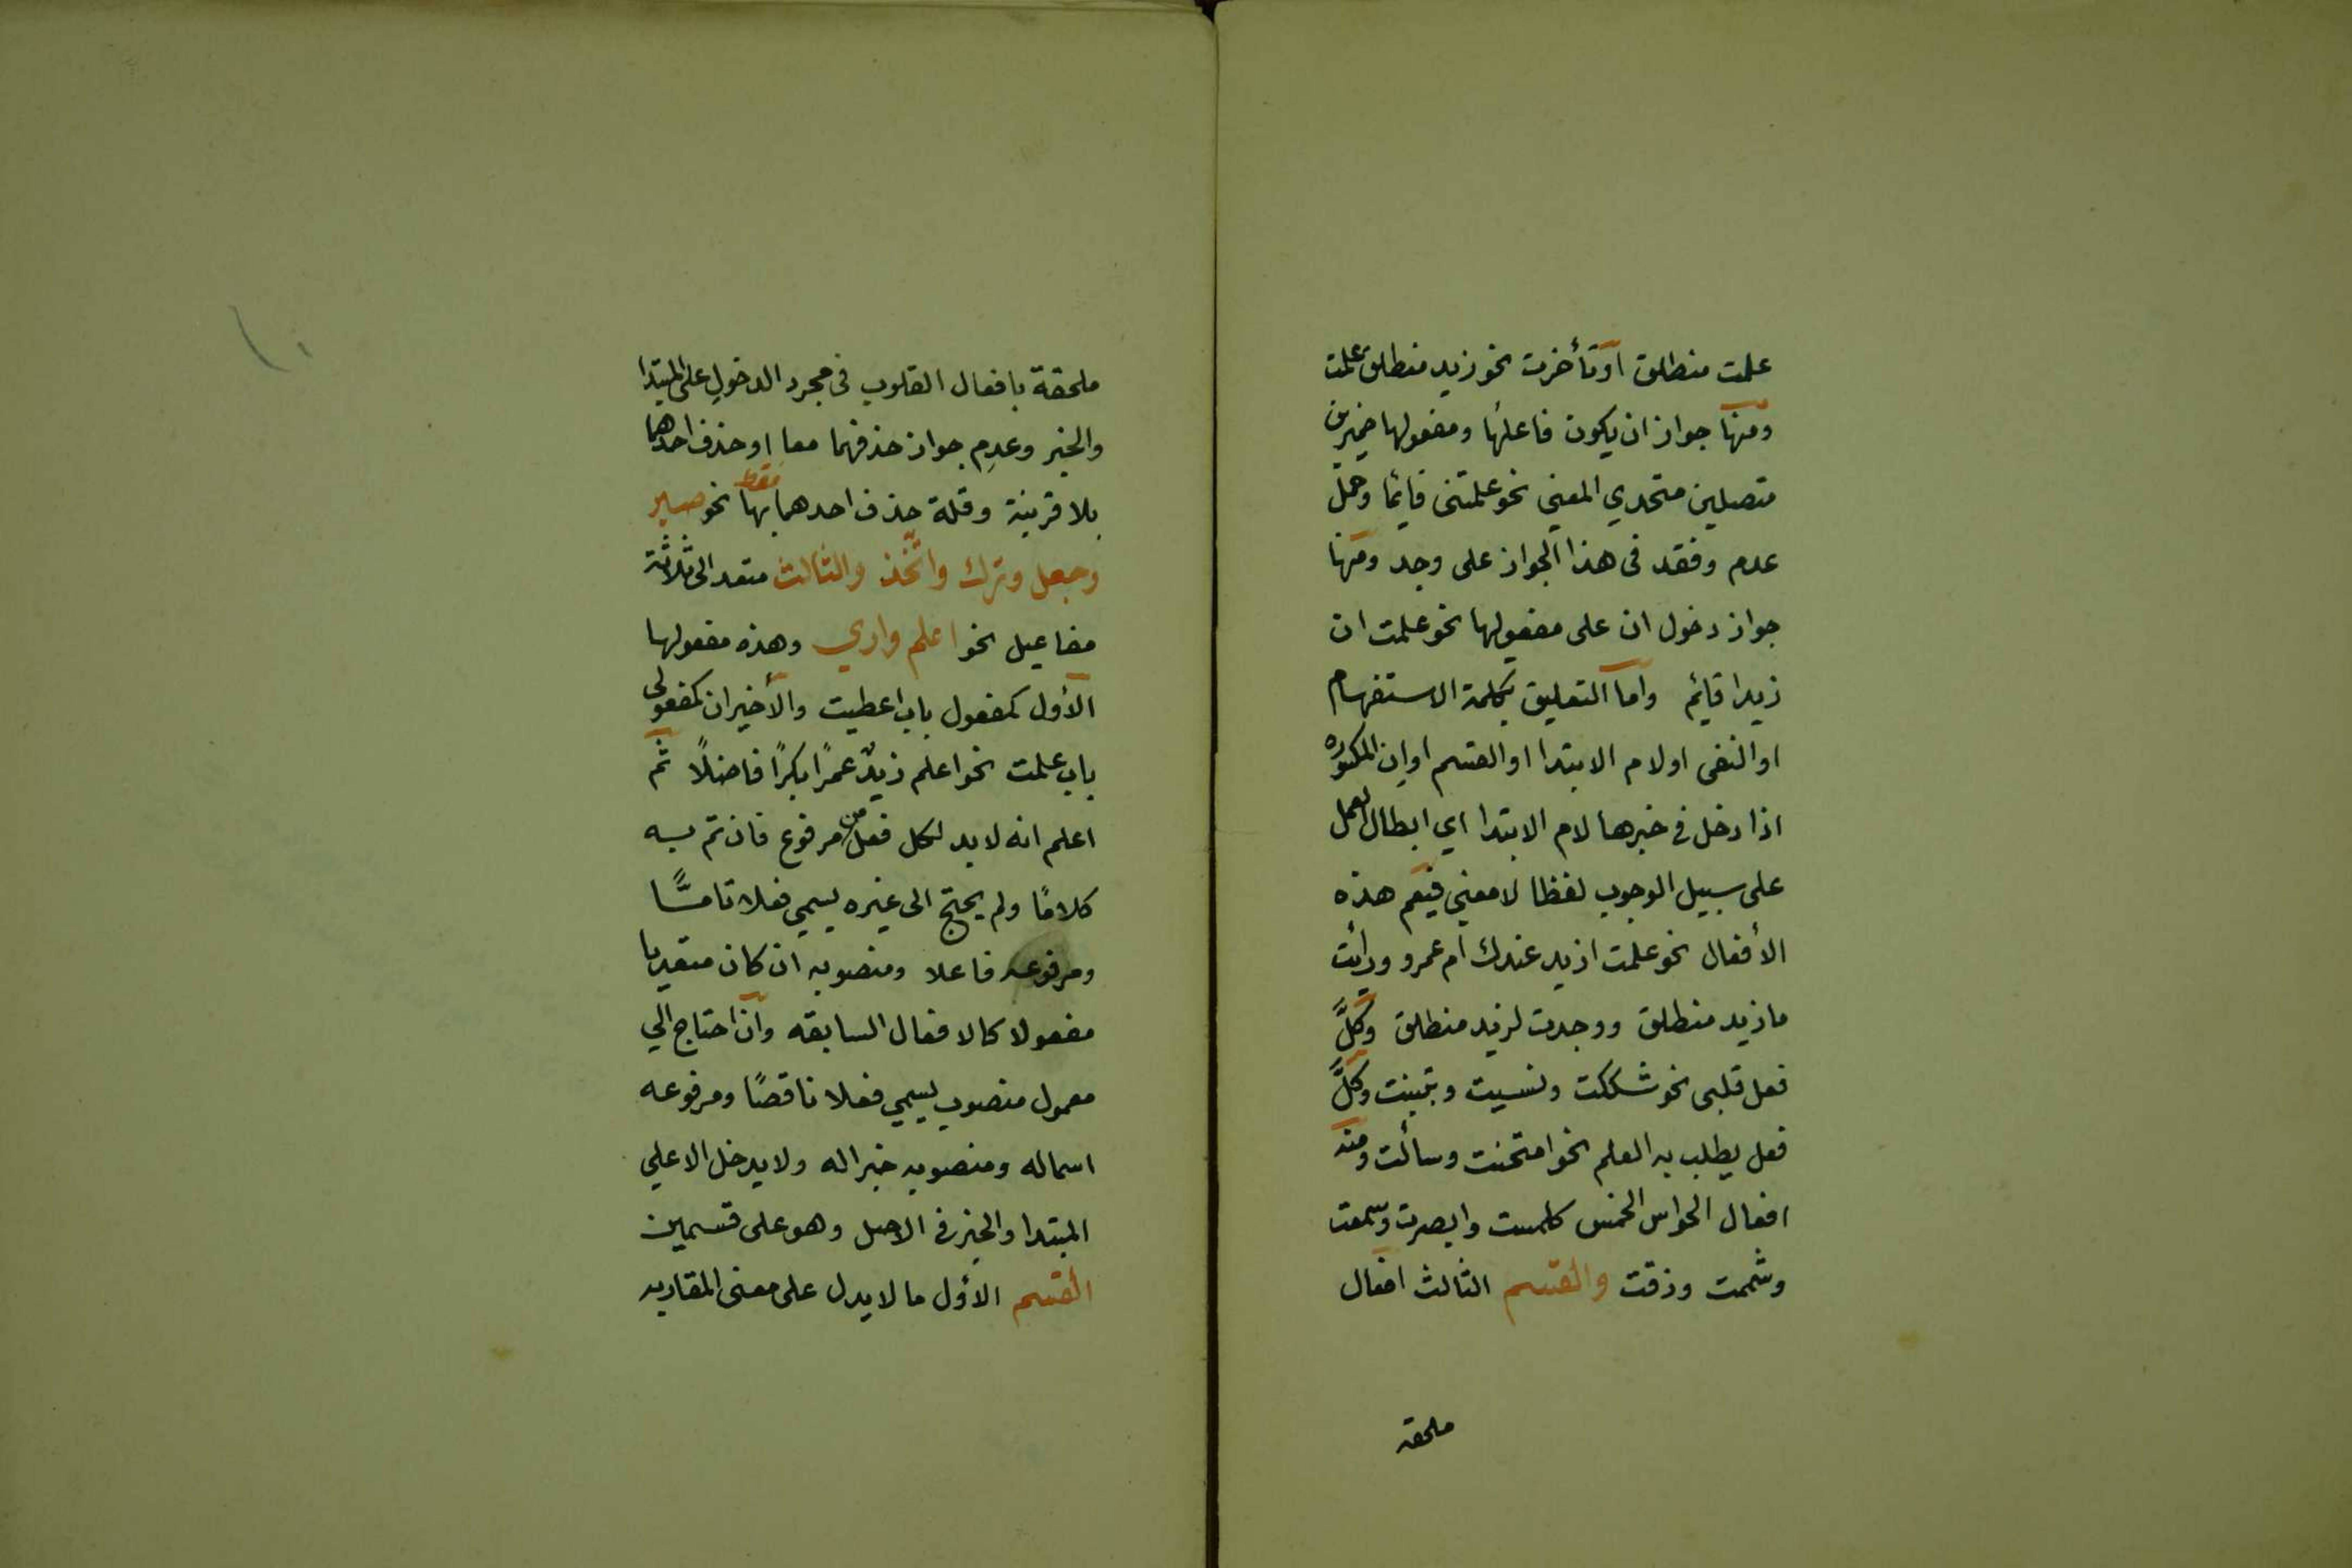 علمت منطلق او تأخرت نحو زيد منطلق علمت
ومنها جواز ان يكون فاعلها ومفعولها ضميرين
متصلين متحدي المعنى نحو علمتنى قايما وحمل
عدم وفقد فى هذا الجواز على وجد ومنها
جواز دخول ان على مفعولها نحو علمت ان
زيدا قايم واما التعليق بكلمة الاستفهام
او النفى او لام الابتدا او القسم او ان المكسوره
اذا دخل في خبرها لام الابتدا اي ابطال العمل
على سبيل الوجوب لفظا لا معني فيعم هذه
الأفعال نحو علمت ازيد عندك ام عمرو ورأيت
ما زيد منطلق ووجدت لزيد منطلق وكلَّ
فعل قلبى نحو شككت ونسيت وتبينت وكلَّ
فعل يطلب به العلم نحو امتحنت وسألت ومنه
افعال الحواس الخمس كلمست وابصرت وسمعت
وشممت وذقت والقسم الثالث افعال
ملحقة
ملحقة بافعال القلوب فى مجرد الدخول على المبتدا
والخبر وعدم جواز حذفهما معا او حذف احدهما
فقط
بلا قرينة وقلة حذف احدهما بها نحو صير
وجعل وترك واتّخذ والثالث متعد الى ثلاثة
مفاعيل نحو اعلم واري وهذه مفعولها
الأول كمفعول باب اعطيت والأخيران كمفعولى
باب علمت نحو اعلم زيدٌ عمرًا بكرًا فاضلًا ثم
اعلم انه لا بد لكل فعل من مرفوع فان تم به
كلامًا ولم يحتج الى غيره يسمي فعلا تامًّا
ومرفوعه فاعلا ومنصوبه ان كان متعديا
مفعولا كالافعال السابقه وان احتاج الي
معمول منصوب يسمي فعلا ناقصًا ومرفوعه
اسما له ومنصوبه خبرا له ولا يدخل الا علي
المبتدا والخبر في الاصل وهو على قسمين
القسم الأول ما لا يدل على معنى المقاربه